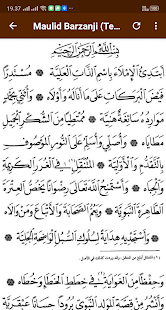 19.37
Maulid Barzanji (Te...
بِسْمِ اللهِ الرَّحْمٰنِ الرَّحِيْمِ
أَبْتَدِئُ الْإِمْلَاءَ بِاسْمِ الذَّاتِ الْعَلِيَّةِ ۞ مُسْتَدِرًّا
فَيْضَ الْبَرَكَاتِ عَلَى مَا أَنَالَهُ وَأَوْلَاهُ ۞ وَأُثَنِّي بِحَمْدٍ
مَوَارِدُهُ سَائِغَةٌ هَنِيَّةٌ ۞ مُمْتَطِيًا مِنَ الشُّكْرِ الْجَمِيْلِ
مَطَايَاهُ ۞ وَأُصَلِّي وَأُسَلِّمُ عَلَى النُّوْرِ الْمَوْصُوْفِ
بِالتَّقَدُّمِ وَالْأَوَّلِيَّةِ ۞ الْمُنْتَقِلِ فِي الْغُرَرِ الْكَرِيْمَةِ
وَالْجِبَاهِ ۞ وَأَسْتَمْنِحُ اللهَ تَعَالَى رِضْوَانًا يَخُصُّ الْعِتْرَةَ
الطَّاهِرَةَ النَّبَوِيَّةَ ۞ وَيَعُمُّ الصَّحَابَةَ وَالْأَتْبَاعَ وَمَنْ وَالَاهُ
۞ وَأَسْتَجْدِيْهِ هِدَايَةً لِسُلُوْكِ السُّبُلِ الْوَاضِحَةِ الْجَلِيَّةِ
وَحِفْظًا مِنَ الْغَوَايَةِ فِي خِطَطِ الْخَطَاءِ وَخُطَاهُ ۞
وَأَنْشُرُ مِنْ قِصَّةِ الْمَوْلِدِ النَّبَوِيِّ بُرُوْدًا حِسَانًا عَبْقَرِيَّةً